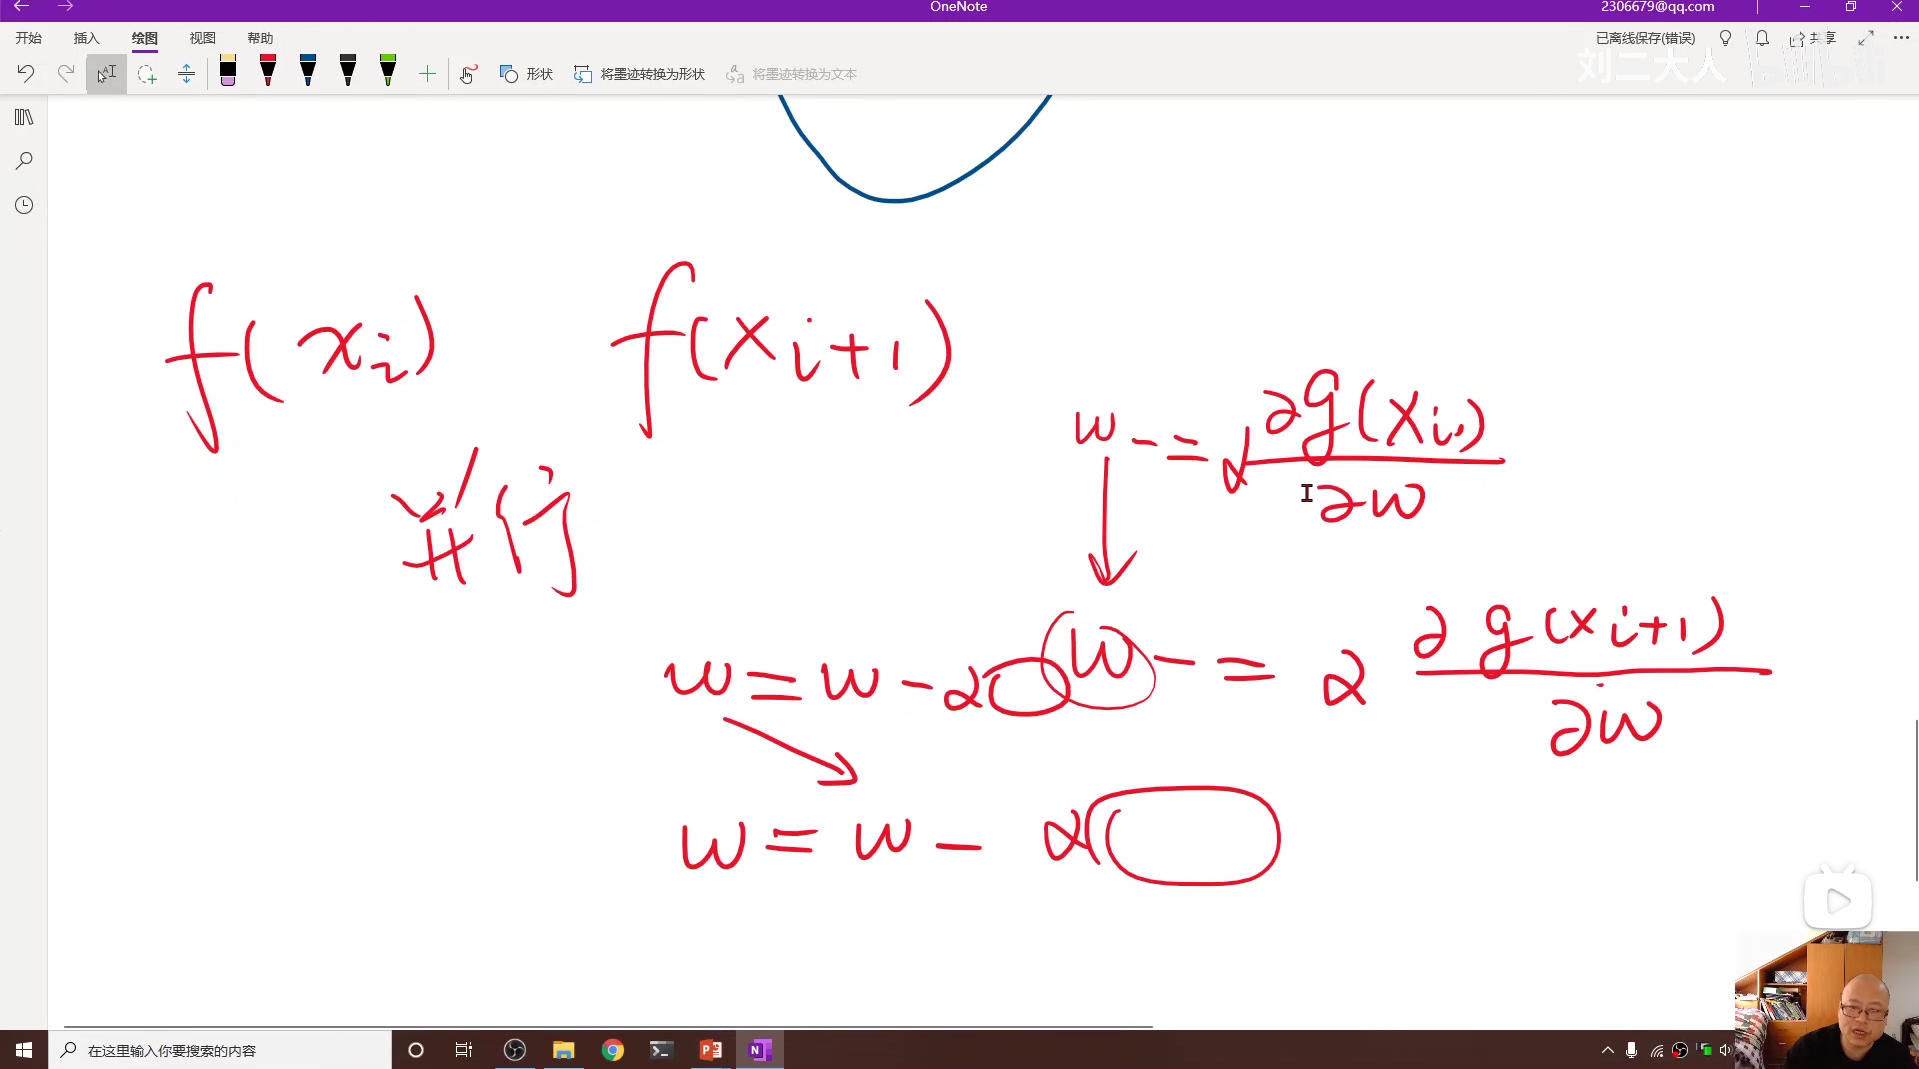 OneNote
2306679@qq.com
开始 插入 绘图 视图 帮助
已离线保存(错误) 共享
形状 将墨迹转换为形状 将墨迹转换为文本
刘二大人 bilibili
f(xᵢ) f(xᵢ₊₁)
w -= α ∂g(xᵢ)/∂w
并行
w = w - α
w -= α ∂g(xᵢ₊₁)/∂w
w = w - α
在这里输入你要搜索的内容